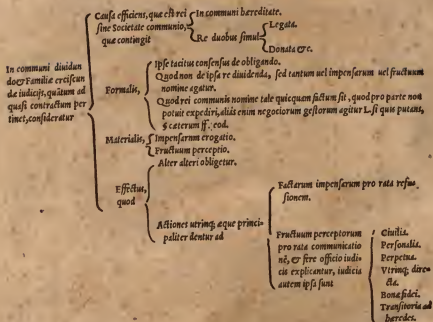 In communi diuidun
do & Familiæ erciscun
dæ iudicijs, quātum ad
quasi contractum per
tinet, consideratur
Causa efficiens, quæ est rei
sine Societate communio,
quæ contingit
In communi hæreditate.
Re duobus simul
Legata.
Donata &c.
Formalis,
Ipse tacitus consensus de obligando.
Quod non de ipsa re diuidenda, sed tantum uel impensarum uel fructuum
nomine agatur.
Quod rei communis nomine tale quicquam factum sit, quod pro parte non
potuit expediri, aliàs enim negociorum gestorum agitur L. si quis putans,
§ cæterum ff. eod.
Materialis,
Impensarum erogatio.
Fructuum perceptio.
Effectus,
quod
Alter alteri obligetur.
Actiones utrinq; æque princi-
paliter dentur ad
Factarum impensarum pro rata refu-
sionem.
Fructuum perceptorum
pro rata communicatio
nē, & fere officio iudi
cis explicantur, iudicia
autem ipsa sunt
Ciuilia.
Personalia.
Perpetua.
Vtrinq; dire-
cta.
Bonæ fidei.
Transitoria ad
hæredes.